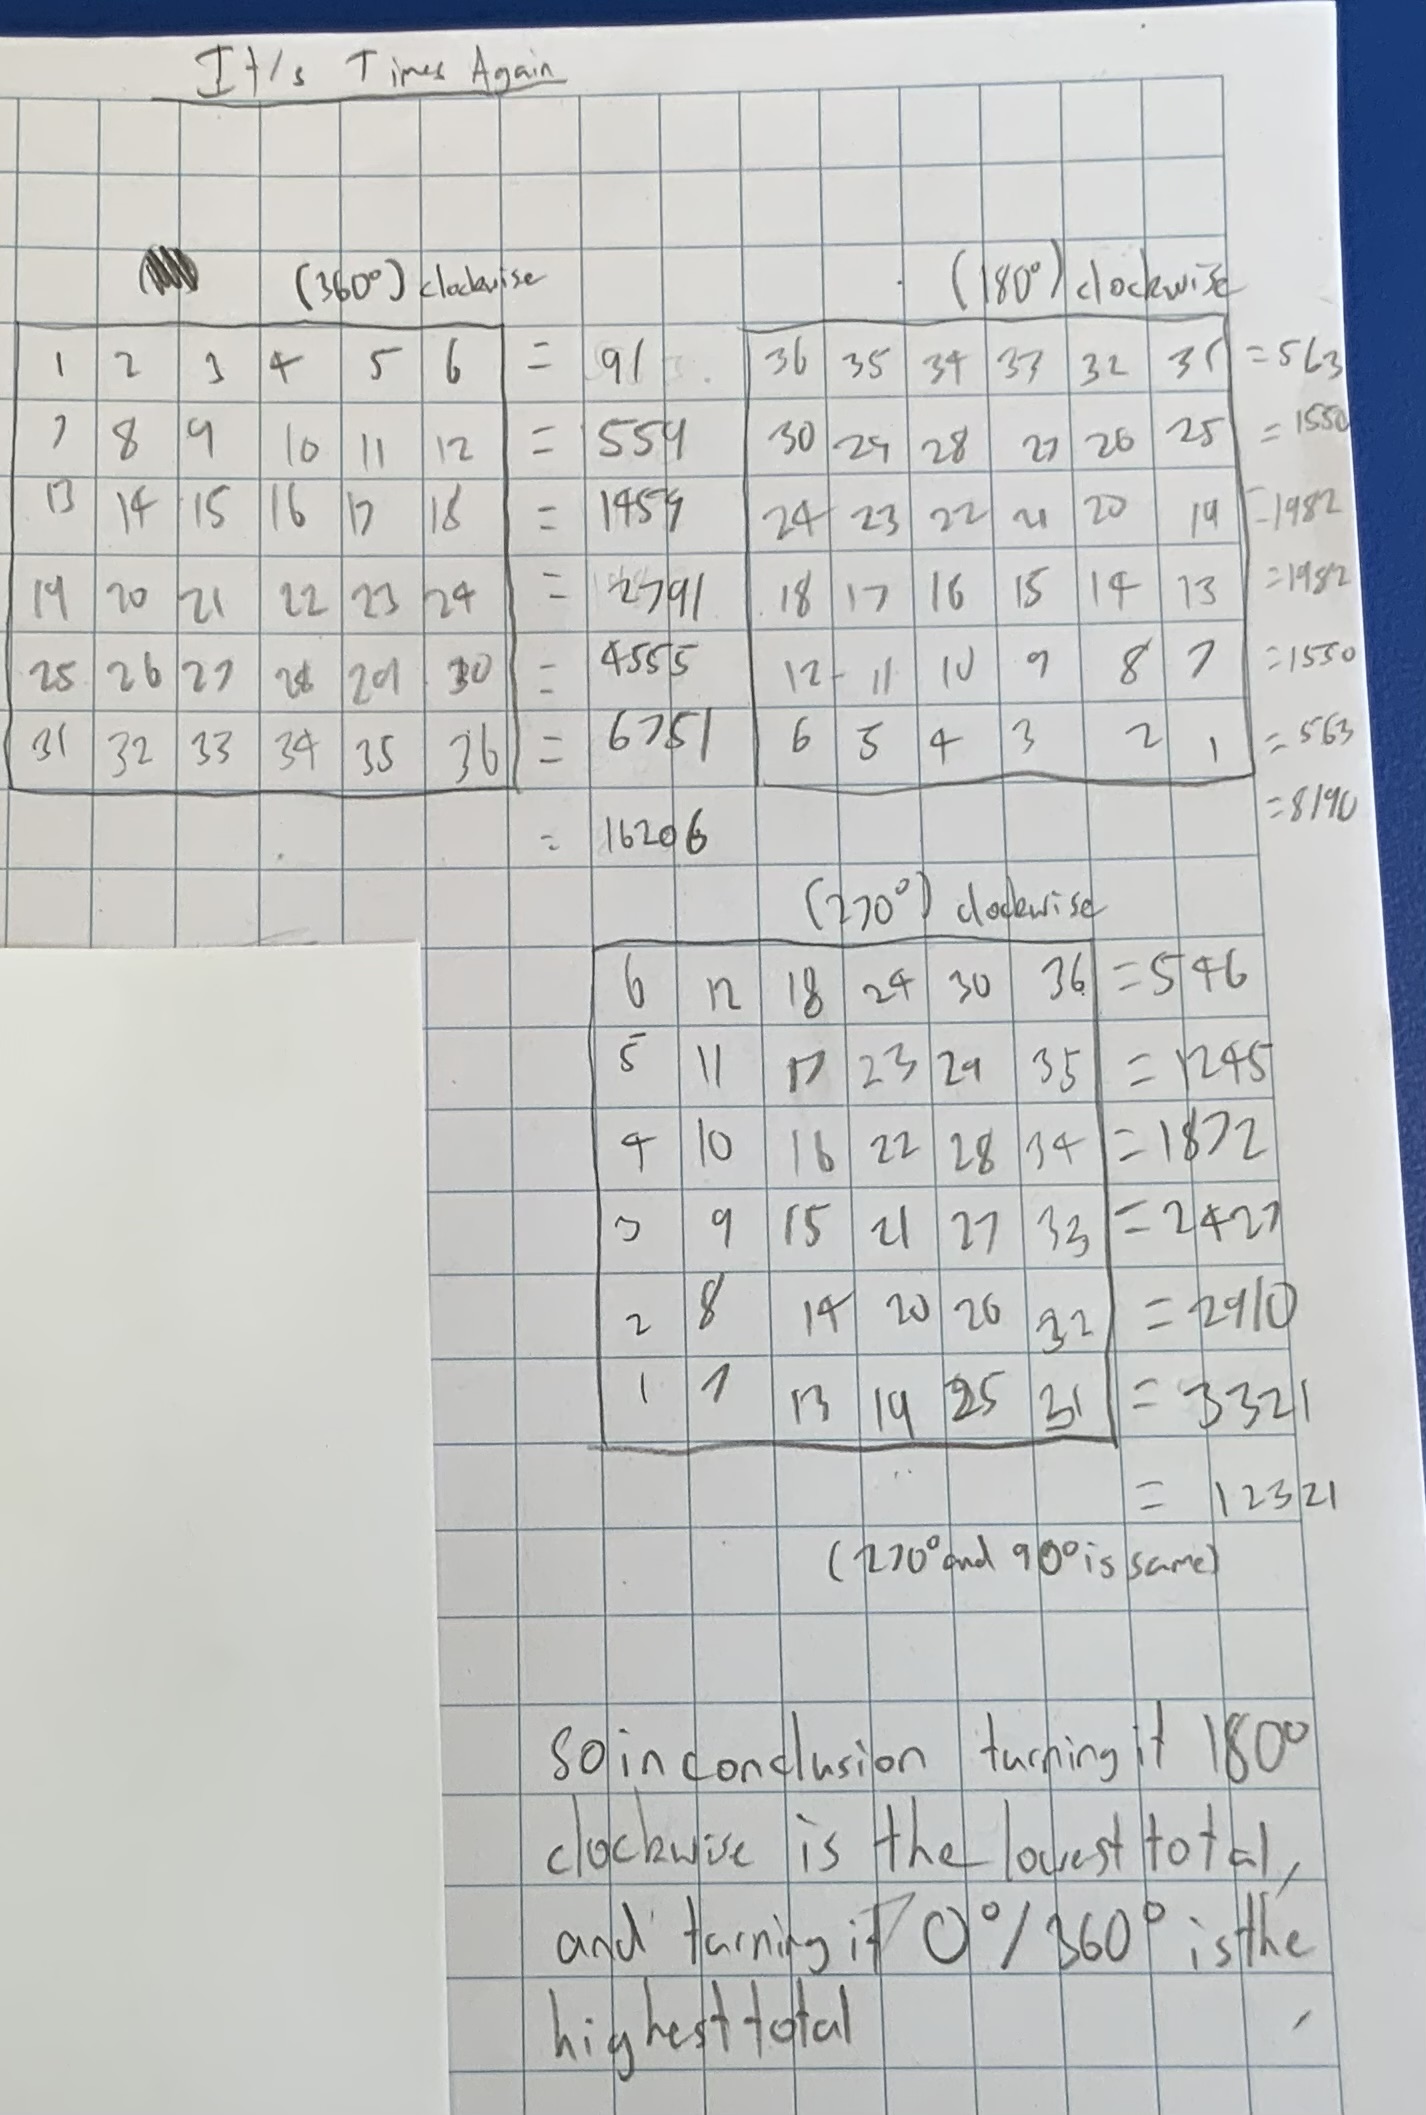 It's Times Again
(360°) clockwise
1 2 3 4 5 6 = 91
7 8 9 10 11 12 = 559
13 14 15 16 17 18 = 1459
19 20 21 22 23 24 = 2791
25 26 27 28 29 30 = 4555
31 32 33 34 35 36 = 6751
= 16206
(180°) clockwise
36 35 34 33 32 31 = 563
30 29 28 27 26 25 = 1550
24 23 22 21 20 19 = 1982
18 17 16 15 14 13 = 1982
12 11 10 9 8 7 = 1550
6 5 4 3 2 1 = 563
= 8190
(270°) clockwise
6 12 18 24 30 36 = 546
5 11 17 23 29 35 = 1245
4 10 16 22 28 34 = 1872
3 9 15 21 27 33 = 2427
2 8 14 20 26 32 = 2910
1 7 13 19 25 31 = 3321
= 12321
(270° and 90° is same)
So in conclusion turning it 180°
clockwise is the lowest total,
and turning it 0°/360° is the
highest total